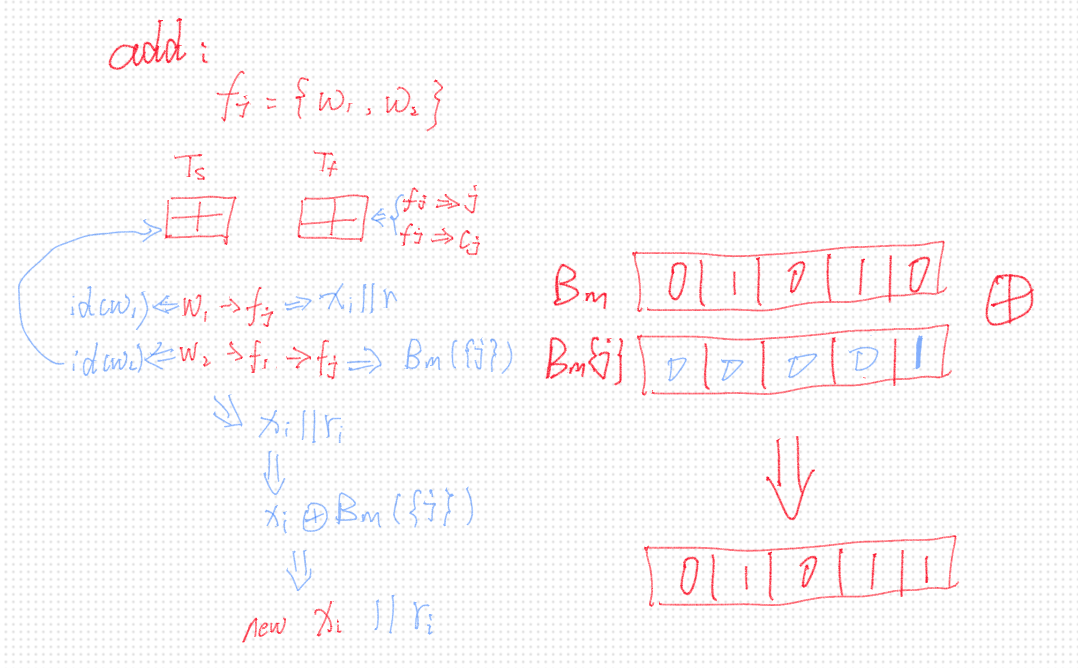 add:
f_j = {w_1, w_2}
T_s T_f
f_j ⇒ j
f_j ⇒ c_j
id(w_1) ⇐ w_1 → f_j ⇒ x_i||r_i
id(w_2) ⇐ w_2 → f_1 → f_j ⇒ B_m({j})
x_i||r_i
x_i ⊕ B_m({j})
new x_i ||r_i
B_m 0 1 0 1 0 ⊕
B_m{j} 0 0 0 0 1
0 1 0 1 1